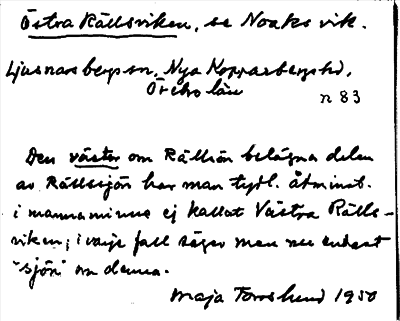 Östra Rällsviken, se Noaks vik.
Ljusnarsbergs sn, Nya Kopparbergs hd,
Örebro län
n 83
Den väster om Rällsön belägna delen
av Rällssjön har man tydl. åtminst.
i mannaminne ej kallat Västra Rälls-
viken; i varje fall säger man nu endast
"sjön" om denna.
Maja Forslund 1950